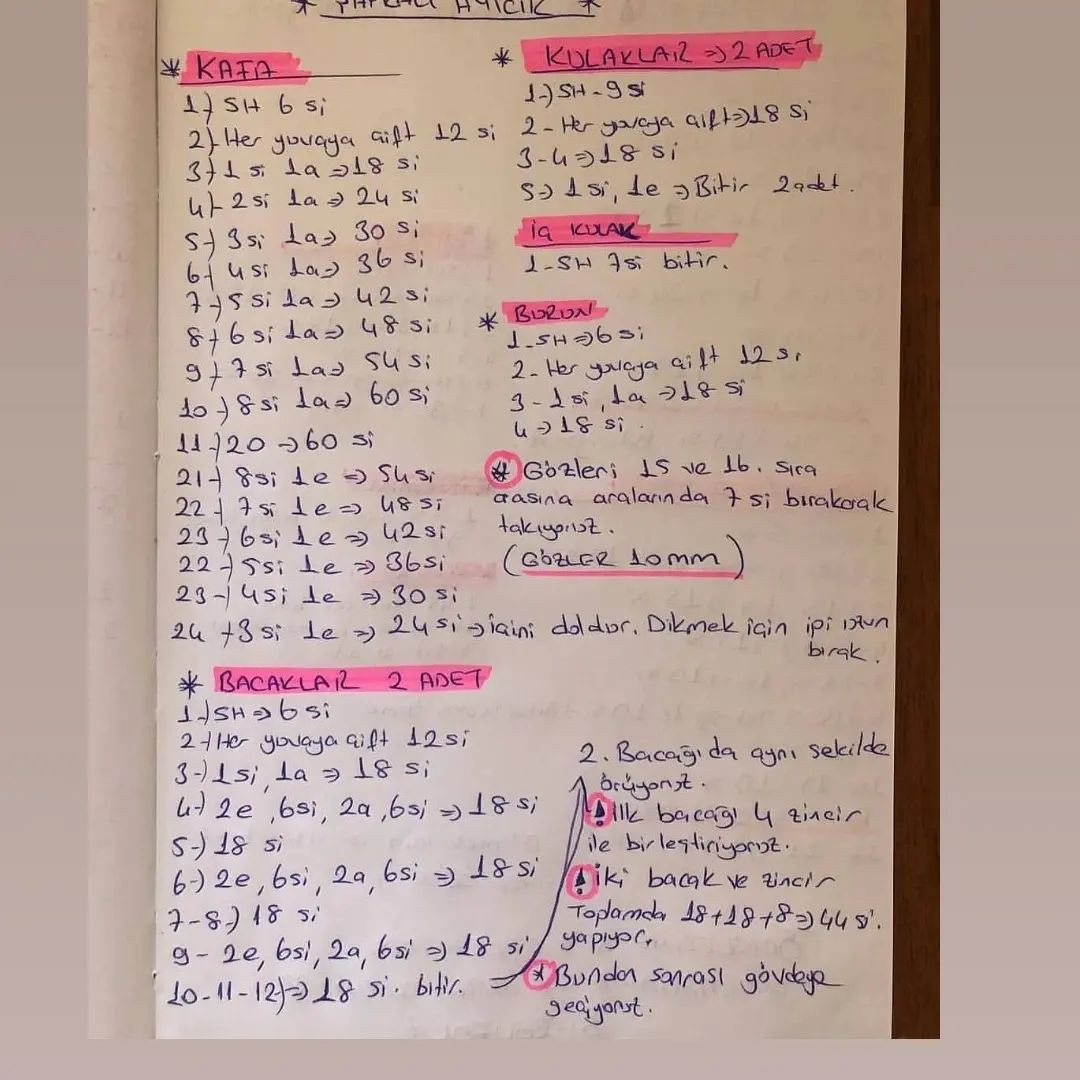 * PAPKALI AYICIK *
* KAFA
1-) SH 6 si
2-) Her yuvaya çift 12 si
3-) 1 si 1a => 18 si
4-) 2si 1a => 24 si
5-) 3si 1a => 30 si
6-) 4si 1a => 36 si
7-) 5si 1a => 42 si
8-) 6si 1a => 48 si
9-) 7si 1a => 54 si
10-) 8si 1a => 60 si
11-) 20 -> 60 si
21-) 8si 1e => 54 si
22-) 7si 1e => 48 si
23-) 6si 1e => 42si
22-) 5si 1e => 36si
23-) 4si 1e => 30 si
24-) 3 si 1e => 24 si -> içini doldur. Dikmek için ipi uzun
bırak.
* KULAKLAR => 2 ADET
1-) SH - 9 si
2- Her yuvaya çift => 18 si
3-4 => 18 si
5-) 1 si, 1e => Bitir 2 adet.
iç KULAK
1-SH 7si bitir.
* BURUN
1-SH => 6 si
2- Her yuvaya çift 12 si
3- 1si, 1a => 18 si
4 => 18 si.
* Gözleri 15 ve 16. sıra
arasına aralarında 7 si bırakarak
takıyoruz.
(GÖZLER 10mm)
* BACAKLAR 2 ADET
1-) SH => 6 si
2-) Her yuvaya çift 12si
3-) 1si, 1a => 18 si
4-) 2e, 6si, 2a, 6si => 18 si
5-) 18 si
6-) 2e, 6si, 2a, 6si => 18 si
7-8-) 18 si
9- 2e, 6si, 2a, 6si => 18 si
10-11-12-) => 18 si. bitir.
2. Bacağı da aynı şekilde
örüyoruz.
! İlk bacağı 4 zincir
ile birleştiriyoruz.
! iki bacak ve zincir
Toplamda 18+18+8 => 44 si.
yapıyor.
* Bundan sonrası gövdeye
geçiyoruz.